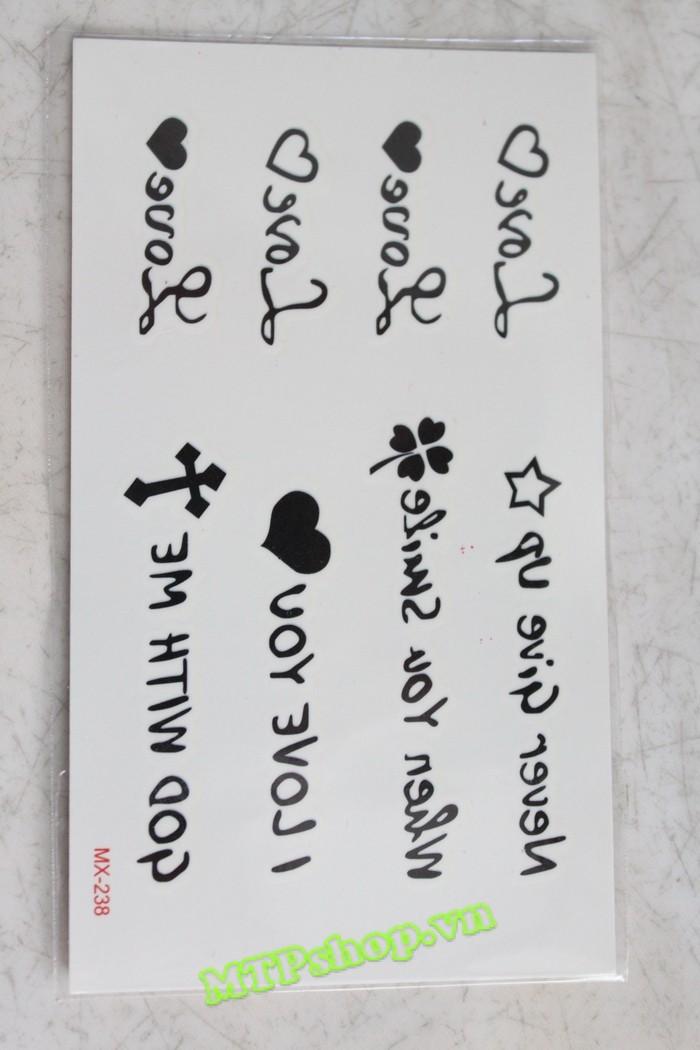 Love
Love
Love
Love
Never Give up
When You Smile
I LOVE YOU
GOD WITH ME
MX-238
MTPshop.vn